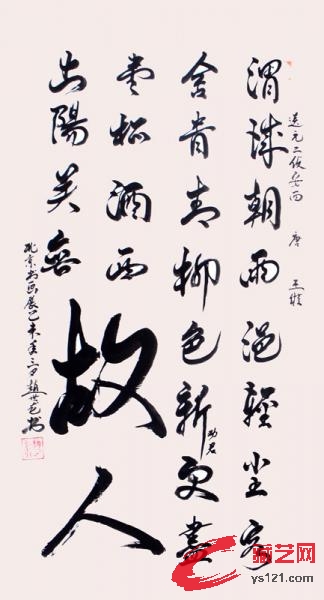 送元二使安西 唐 王維
渭城朝雨浥輕尘客
舍青青柳色新劝君更盡
壹杯酒西
出陽关無
故人
北京书画展乙未年三月趙世书
藏艺网
ys121.com